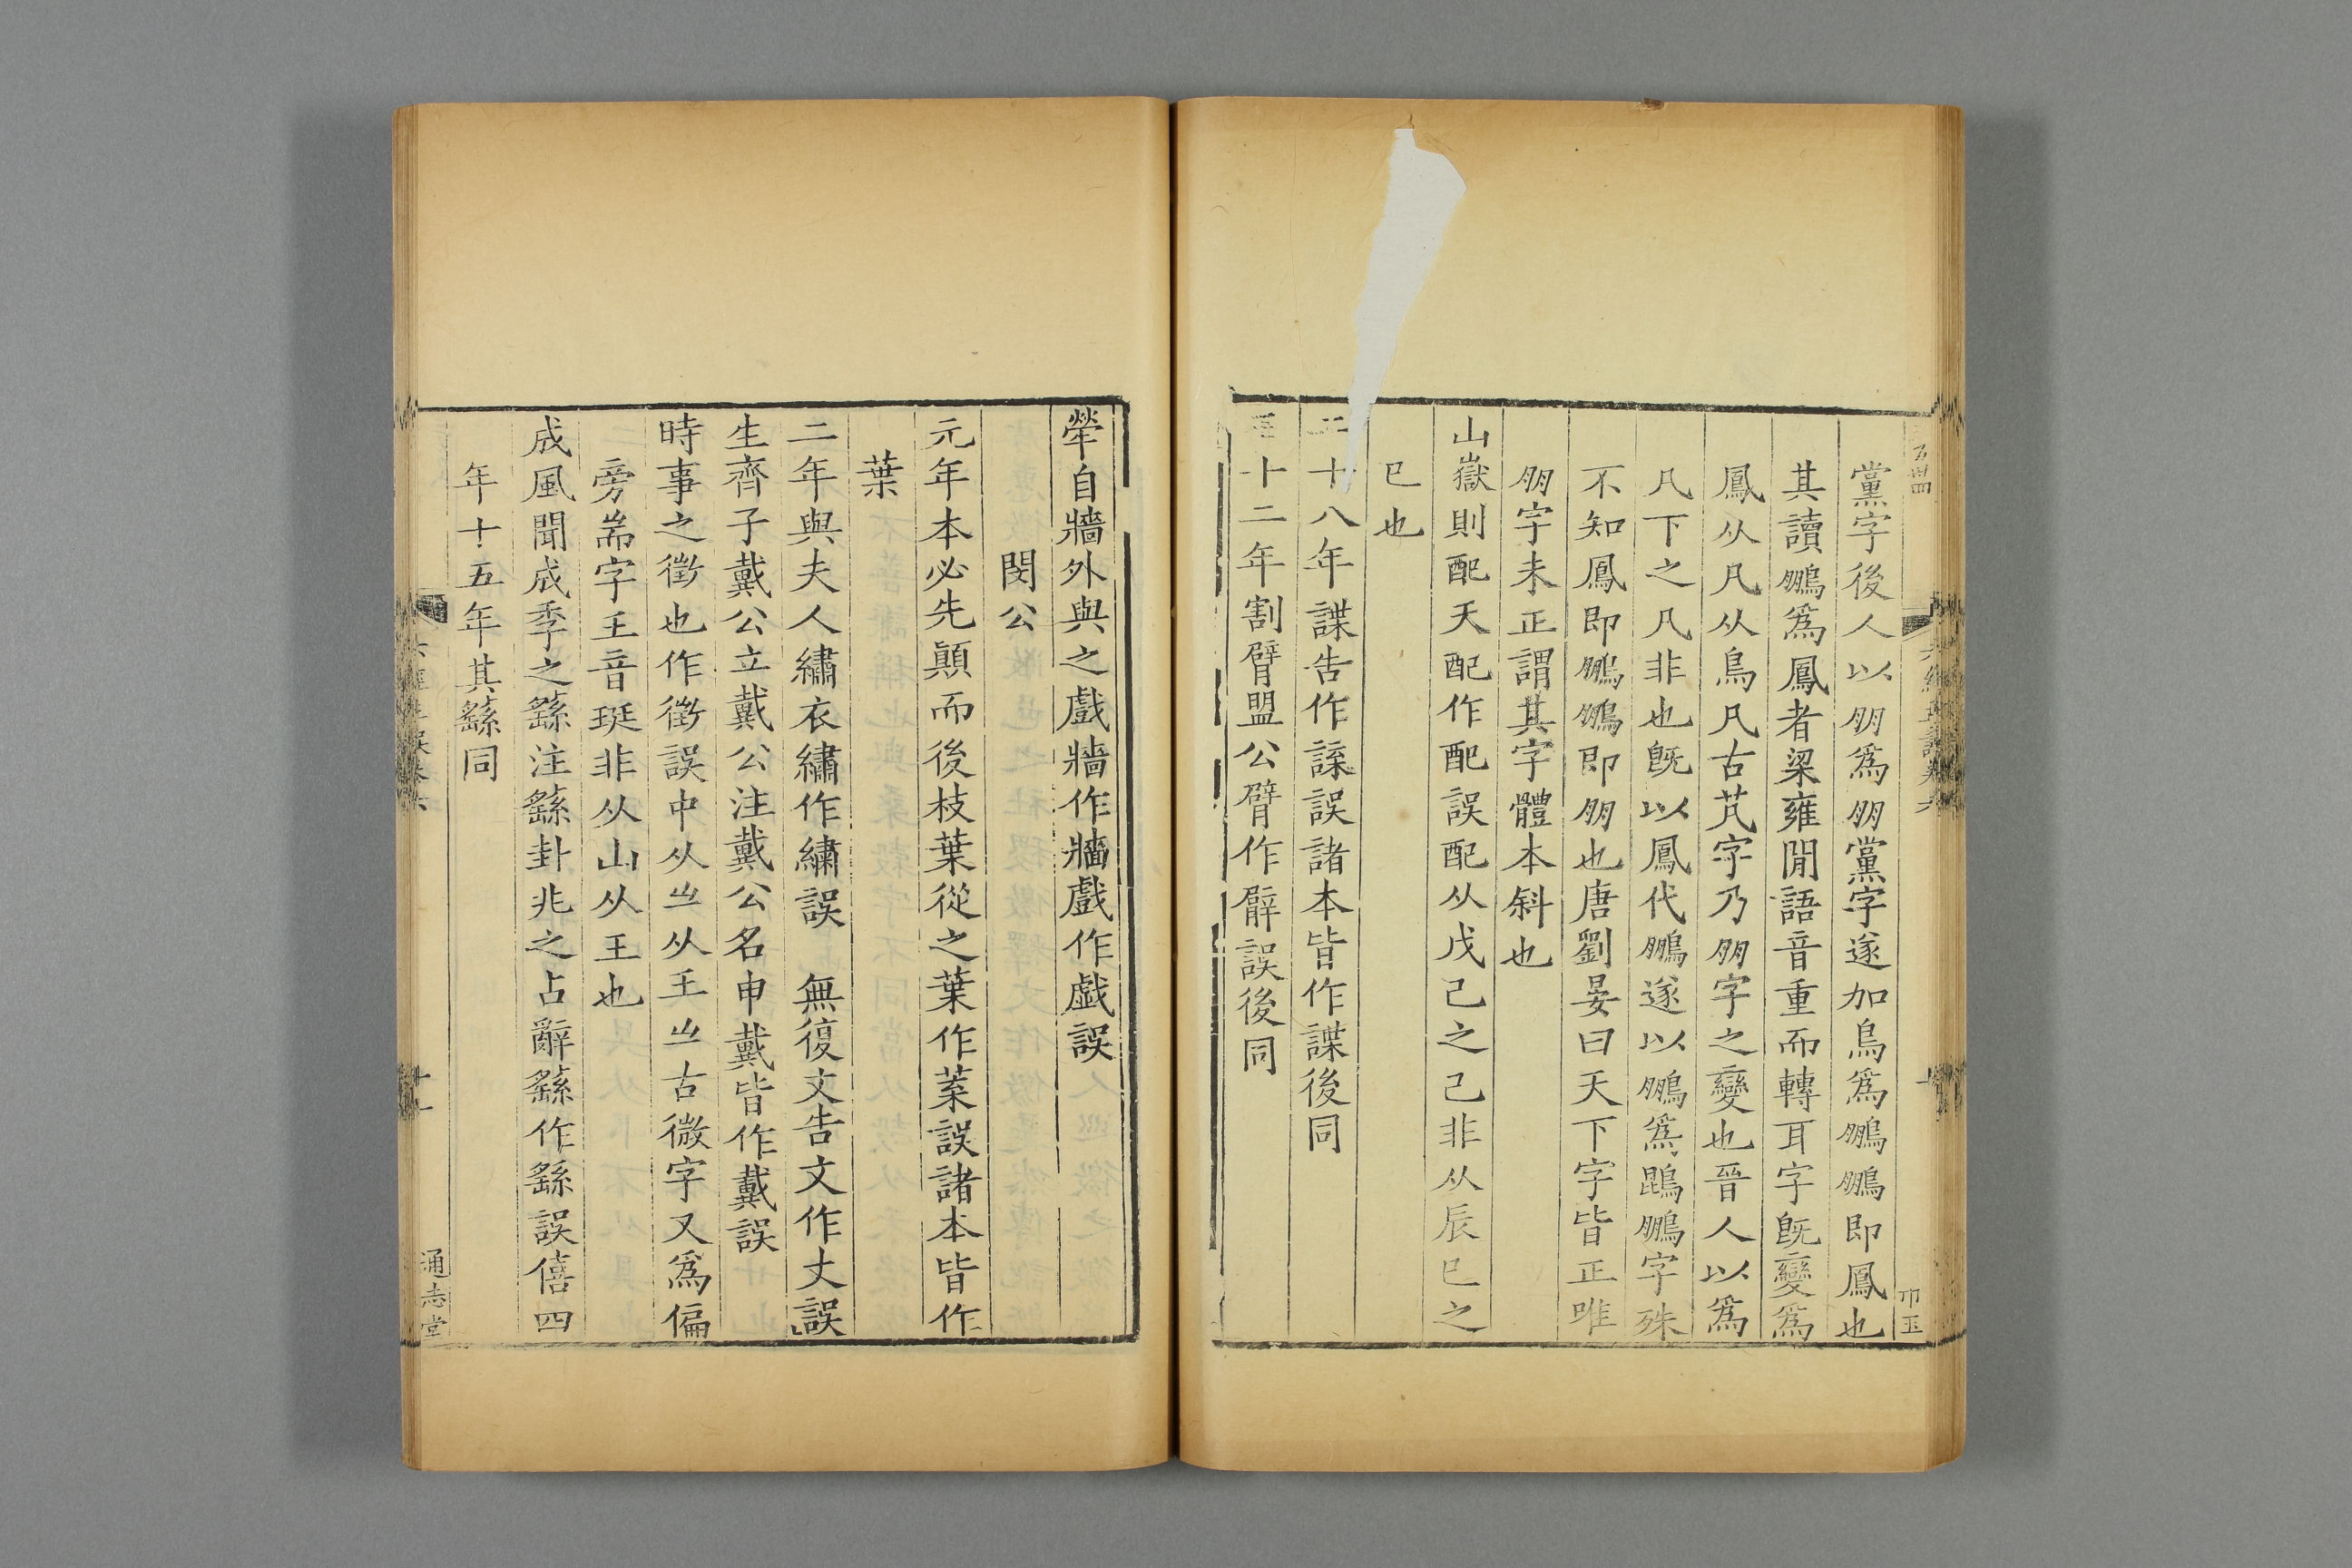 黨字後人以朋爲朋黨字遂加鳥爲鵬鵬即鳳也
其讀鵬爲鳳者梁雍閒語音重而轉耳字旣變爲
鳳从凡从鳥凡古芃字乃朋字之變也晉人以爲
凡下之凡非也旣以鳳代鵬遂以鵬爲鵾鵬字殊
不知鳳即鵬鵬即朋也唐劉晏曰天下字皆正唯
朋字未正謂其字體本斜也
山嶽則配天配作配誤配从戊己之己非从辰巳之
巳也
十八年諜告作諜誤諸本皆作諜後同
十二年割臂盟公臂作臂誤後同
犖自牆外與之戲牆作牆戲作戲誤
閔公
元年本必先顚而後枝葉從之葉作葉誤諸本皆作
葉
二年與夫人繡衣繡作繡誤　無復文告文作丈誤
生齊子戴公立戴公注戴公名申戴皆作戴誤
時事之徵也作徵誤中从𡵂从王𡵂古微字又爲偏
旁耑字王音珽非从山从王也
成風聞成季之繇注繇卦兆之占辭繇作繇誤僖四
年十五年其繇同
通志堂